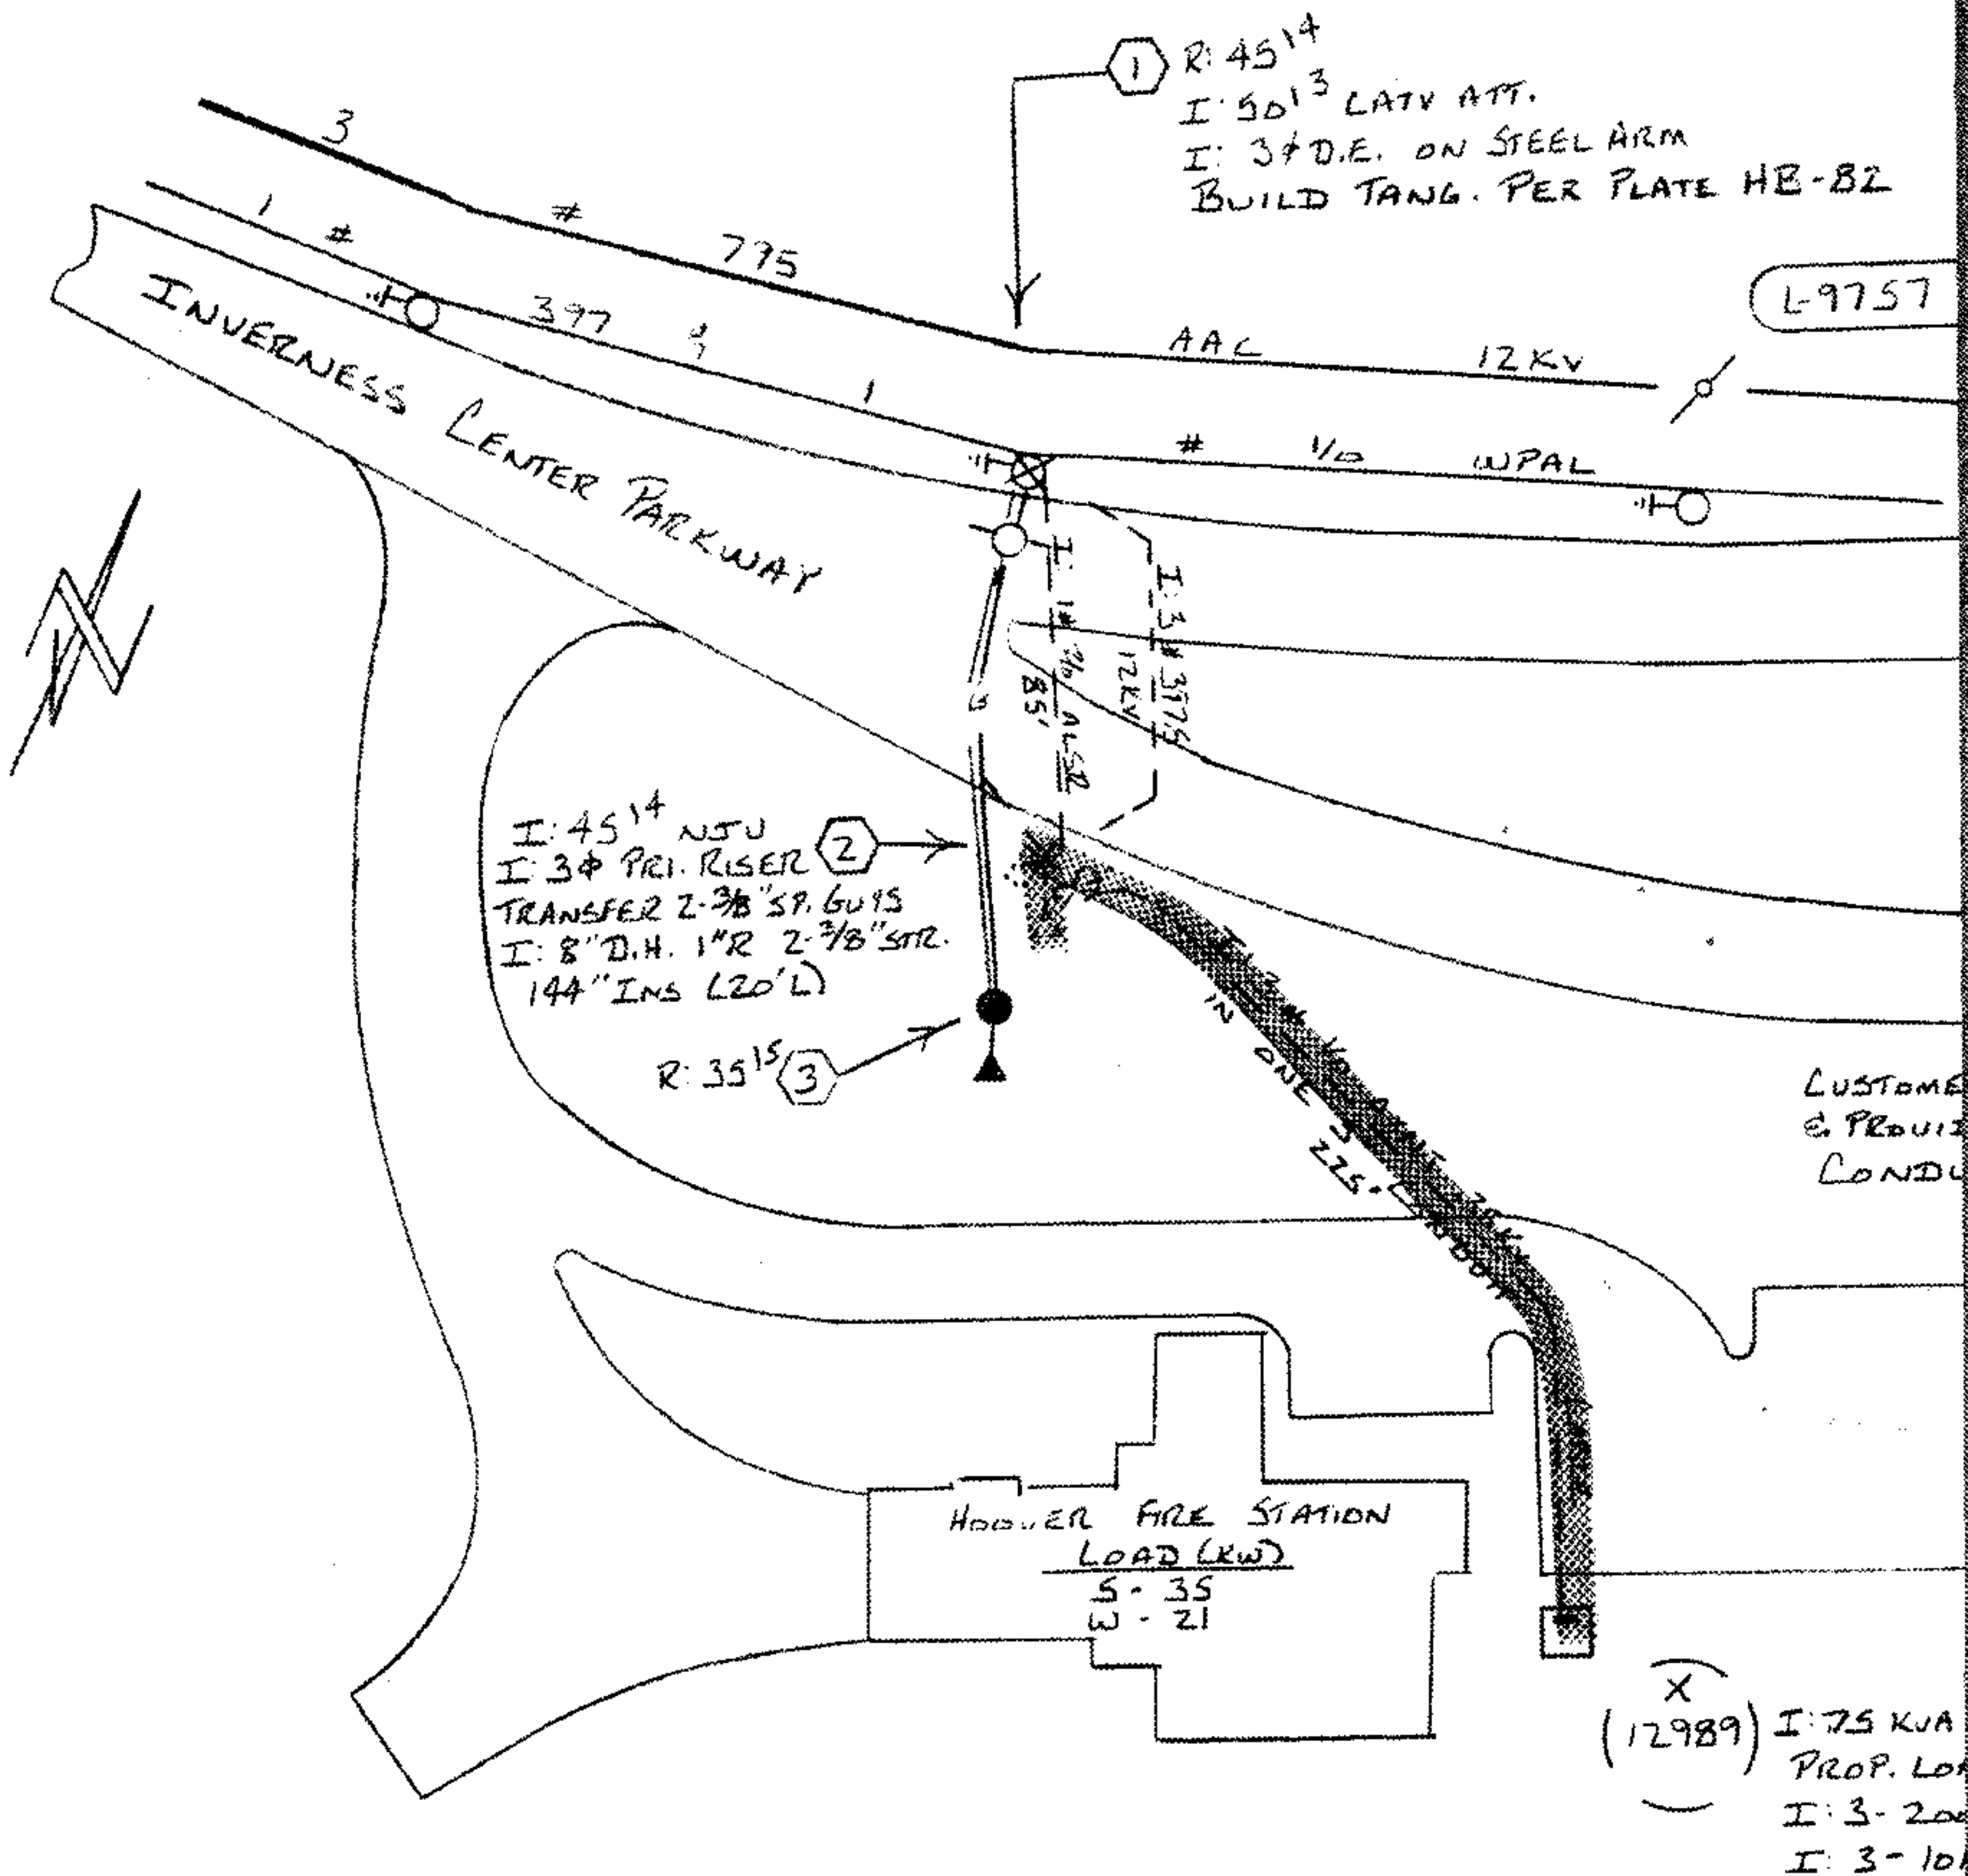 1
R: 45 14
I: 50 13 CATV ATT.
I: 3φ D.E. ON STEEL ARM
BUILD TANG. PER PLATE HB-B2
L-9757
3 # 795 AAC 12KV
1 # 397 & 1 # 1/0 WPAL
INVERNESS CENTER PARKWAY
I: 1#
AL SR
85'
I: 3 # 397.5
12KV
I: 45 14 NJU
2
I: 3φ PRI. RISER
TRANSFER 2-3/8" SP. GUYS
I: 8" D.H. 1"R 2-3/8" STR.
144" INS (20'L)
R: 35 15
3
IN ONE
225'
CUSTOME
& PROVI
COND
HOOVER FIRE STATION
LOAD (KW)
S - 35
W - 21
X
(12989)
I: 75 KVA
PROP. LOA
I: 3-200
I: 3-10